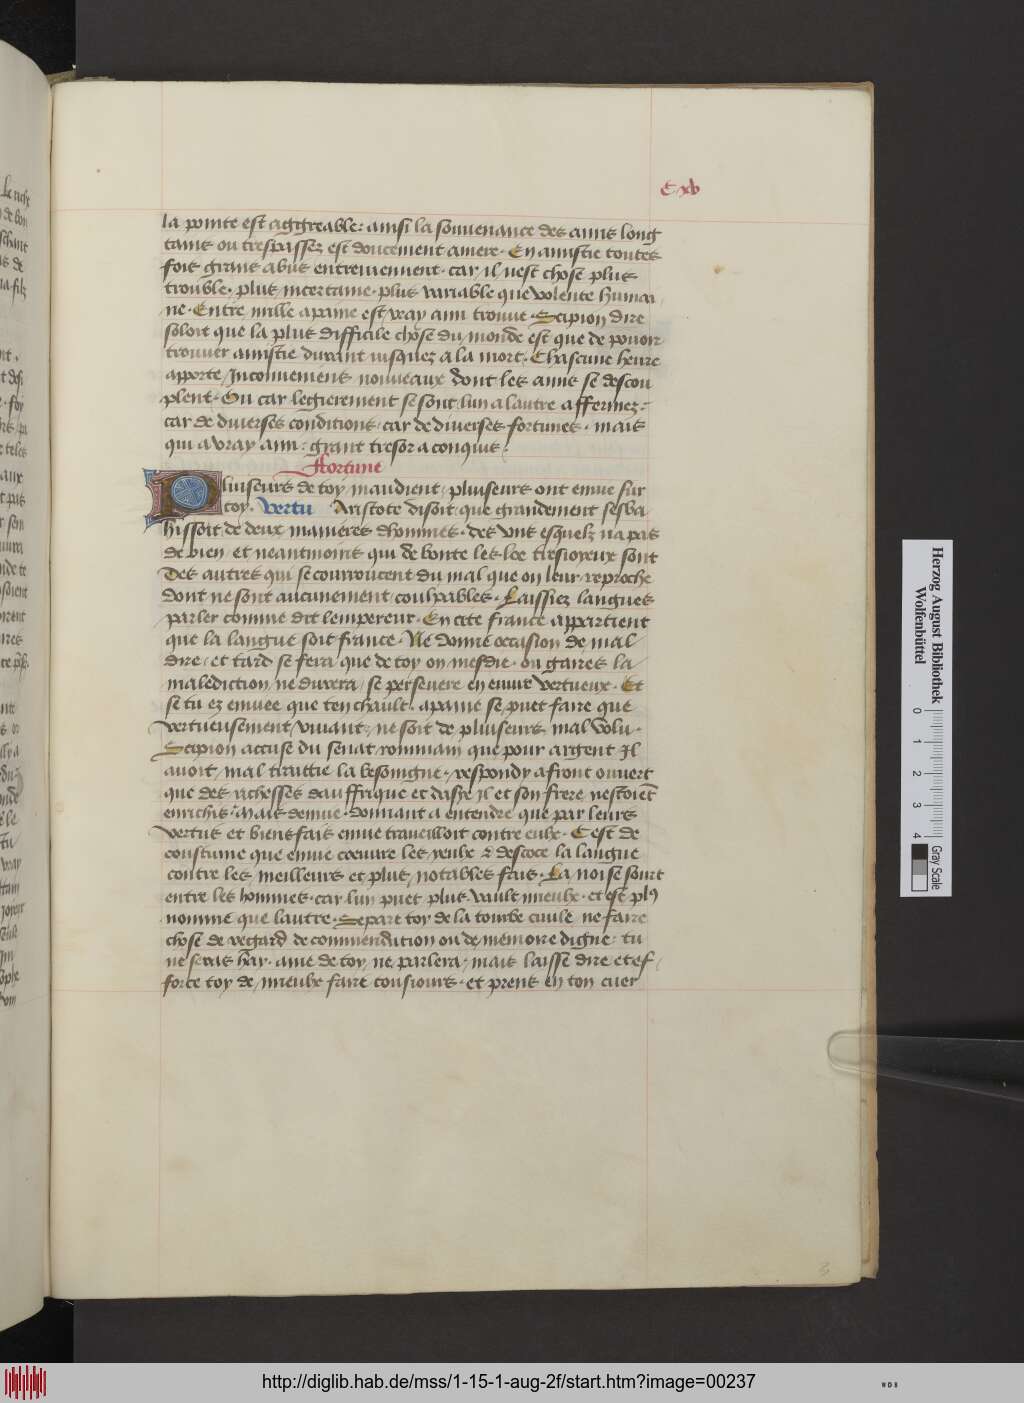 C xv
la pointe est aggreable: ainsi la souvenance des amis loing
tains ou trespassez est doucement amere. En amistie toutes
fois grans abus entreviennent. car il nest chose plus
trouble. plus incertaine. plus variable que volente humai
ne. Entre mille a paine est vray ami trouve. Scipion dire
soloit que la plus difficile chose du monde est que de povoir
trouver amistie durant jusquez a la mort. Chascune heure
apporte Inconveniens nouveaux dont les amis se descou
plent. Ou car legierement se sont lun a lautre affermez:
car de diverses conditions. car de diverses fortunes. mais
qui a vray ami: grant tresor a conquis:
ffortune
Pluiseurs de toy maudient. pluiseurs ont envie sur
toy. Vertu Aristote disoit que grandement sesba
hissoit de deux manieres dhommes. des uns esquelz na pas
de bien et neantmoins qui de bonte les lee tresioyeux sont
Des autres qui se courroucent du mal que on leur reproche
dont ne sont aucunement coulpables. Laissiez langues
parler comme dit lempereur. En cite france appartient
que la langue soit france. Ne donne occasion de mal
dire. et tard se fera que de toy on mesdie. ou gaires la
malediction ne durera se persevere en euvre vertueux. Et
se tu ez enviee que ten chault. a paine se puet faire que
vertueusement vivant. ne soit de pluiseurs mal volu.
Scipion accuse du senat rommain que pour argent Il
avoit mal traittie la besoingne. respondy a front ouvert
que des richesses dauffrique et dasye Il et son frere nestoiet
enrichis. Mais denvie. donnant a entendre que par leurs
vertus et biensfais envie traveilloit contre eulx. Cest de
coustume que envie coeuvre les yeulx & descoce la langue
contre les meilleurs et plus notables fais. La noise sourt
entre les hommes. car lun puet plus vault mieulx. et est pl9
nomme que lautre. Separe toy de la tourbe civile ne faire
chose de regard de commendation ou de memoire digne: tu
ne seras hay. ame de toy ne parlera. mais laisse dire et ef
force toy de mieulx faire tousiours. et prens en ton cuer
Herzog August Bibliothek
Wolfenbüttel
0 1 2 3 4
Gray Scale
http://diglib.hab.de/mss/1-15-1-aug-2f/start.htm?image=00237
WDB